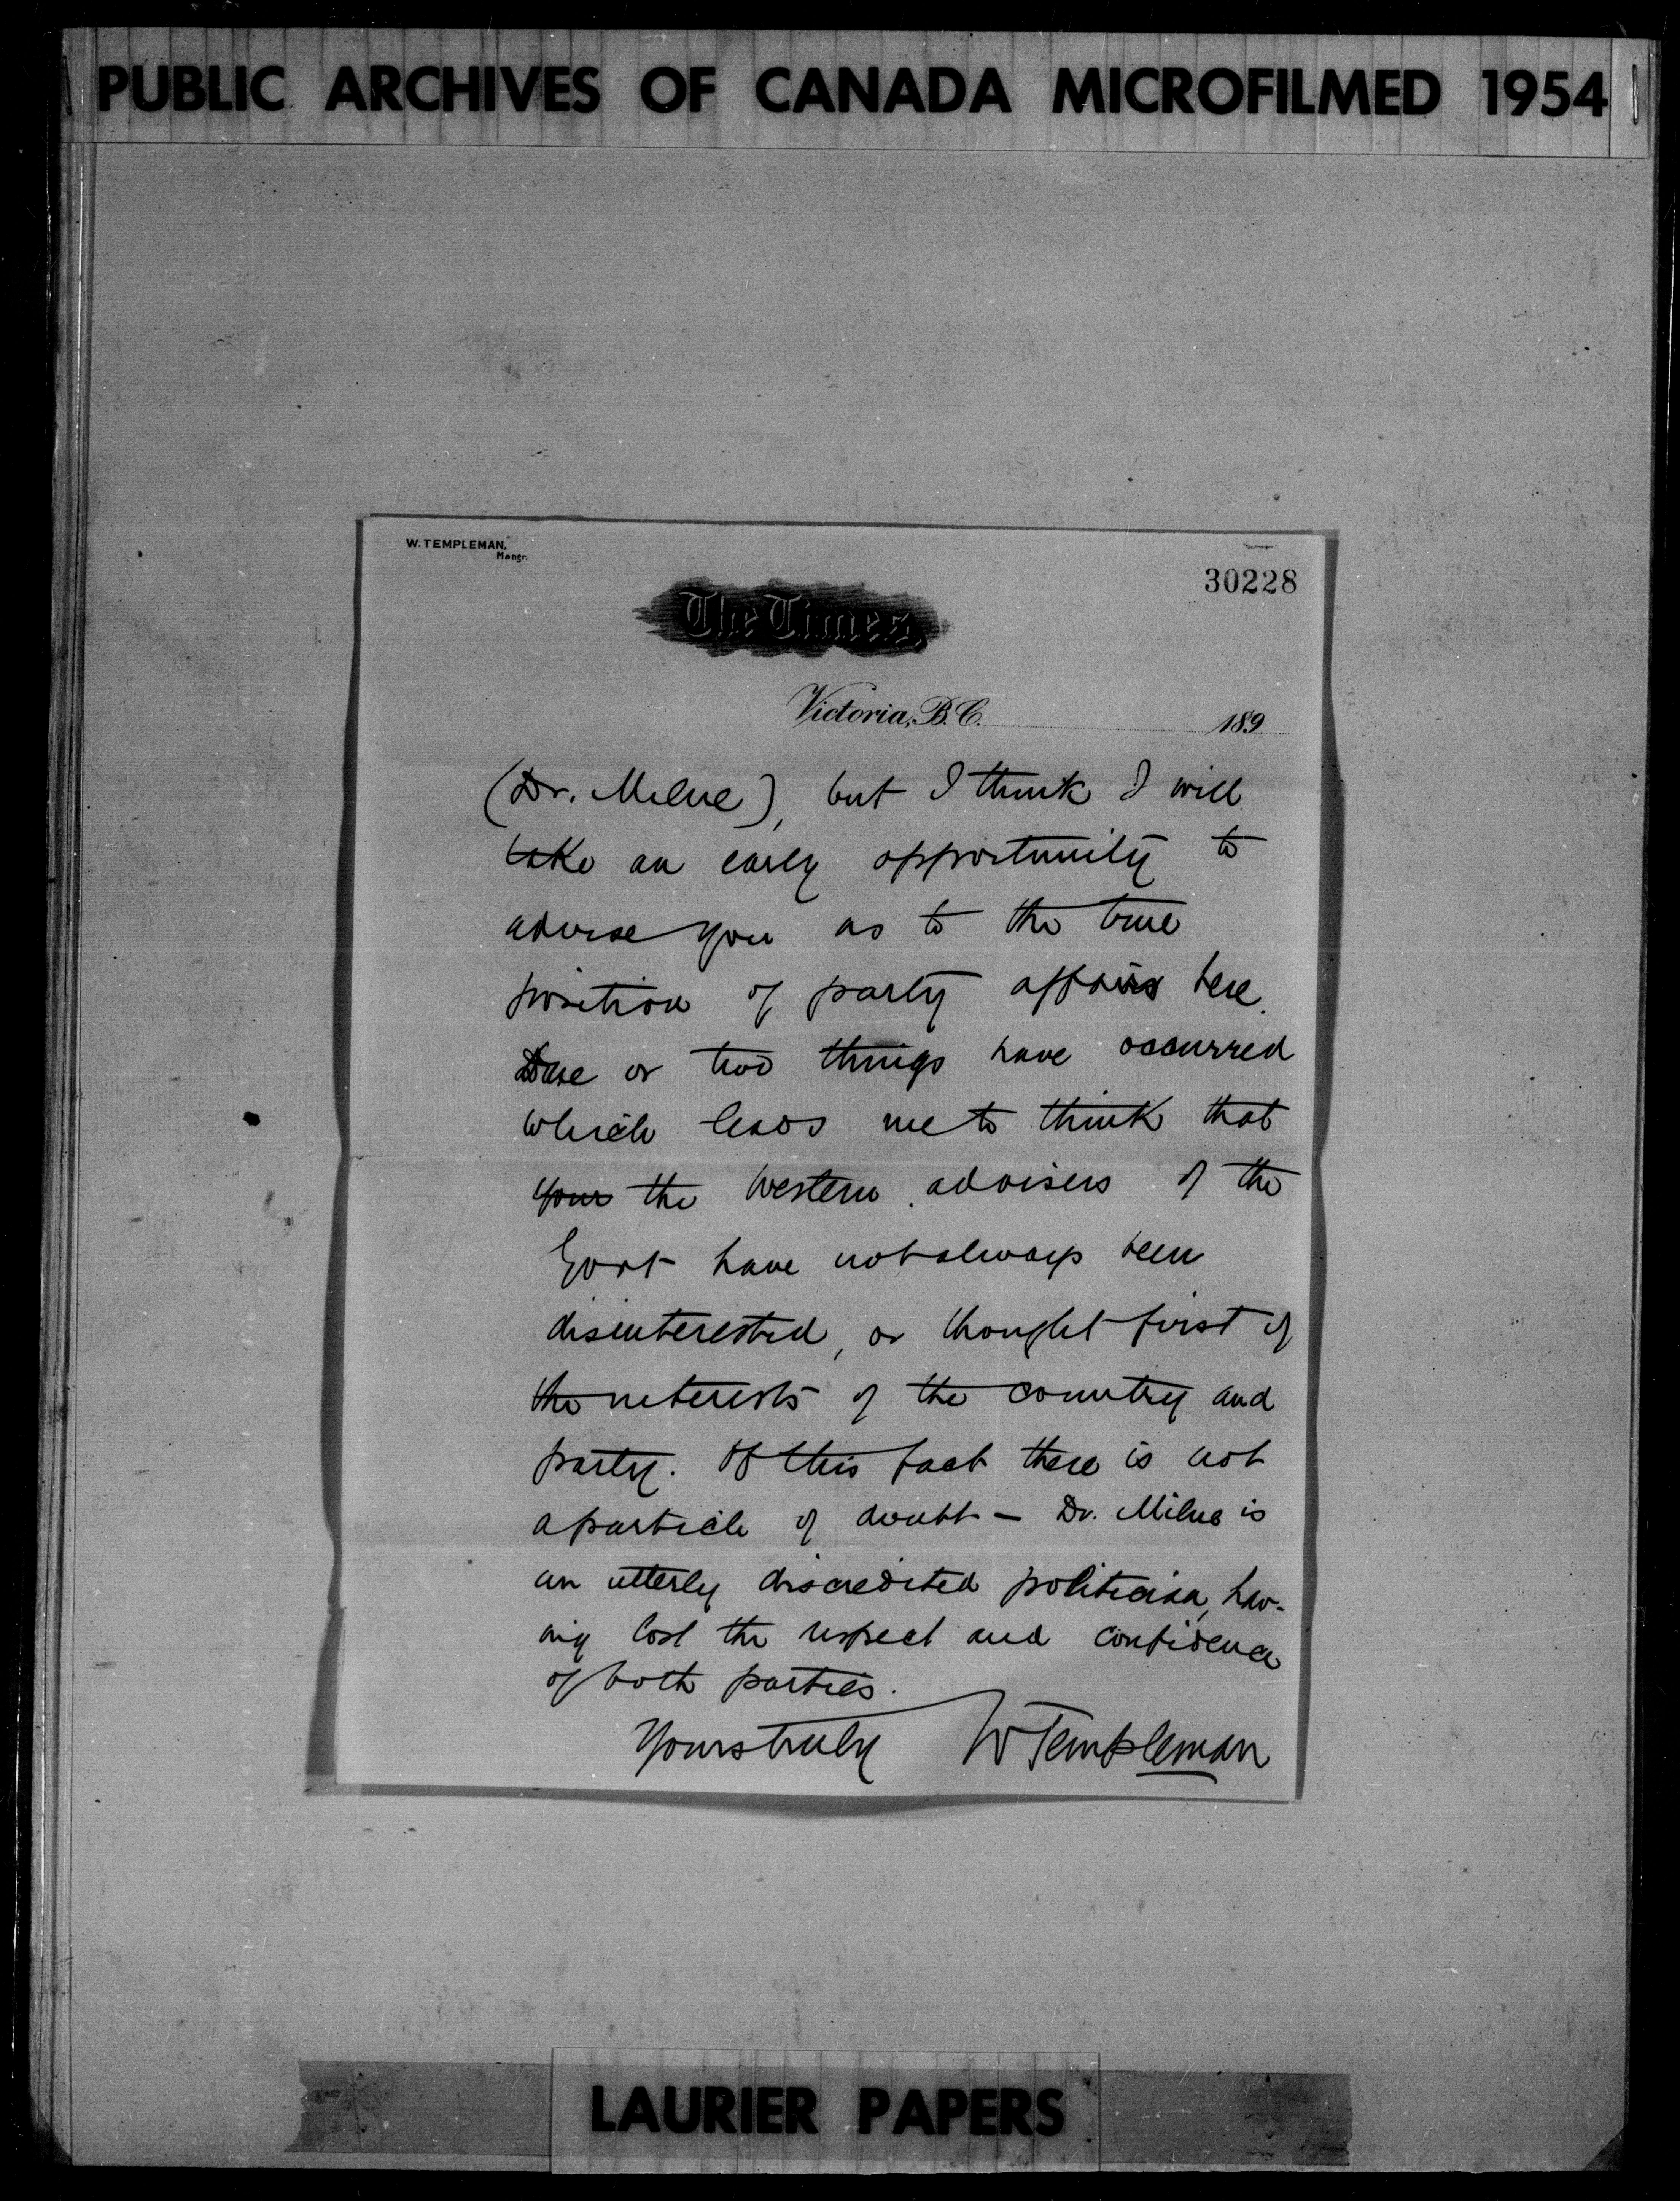 PUBLIC ARCHIVES OF CANADA MICROFILMED 1954
W. TEMPLEMAN,
Mangr.
30228
The Times,
Victoria, B.C. 189
(Dr. Milne), but I think I will
take an early opportunity to
advise you as to the true
position of party affairs here.
One or two things have occurred
which leads me to think that
your the Western advisers of the
Govt have not always been
disinterested, or thought first of
the interests of the country and
party. Of this fact there is not
a particle of doubt — Dr. Milne is
an utterly discredited politician, hav-
ing lost the respect and confidence
of both parties.
Yours truly W Templeman
LAURIER PAPERS